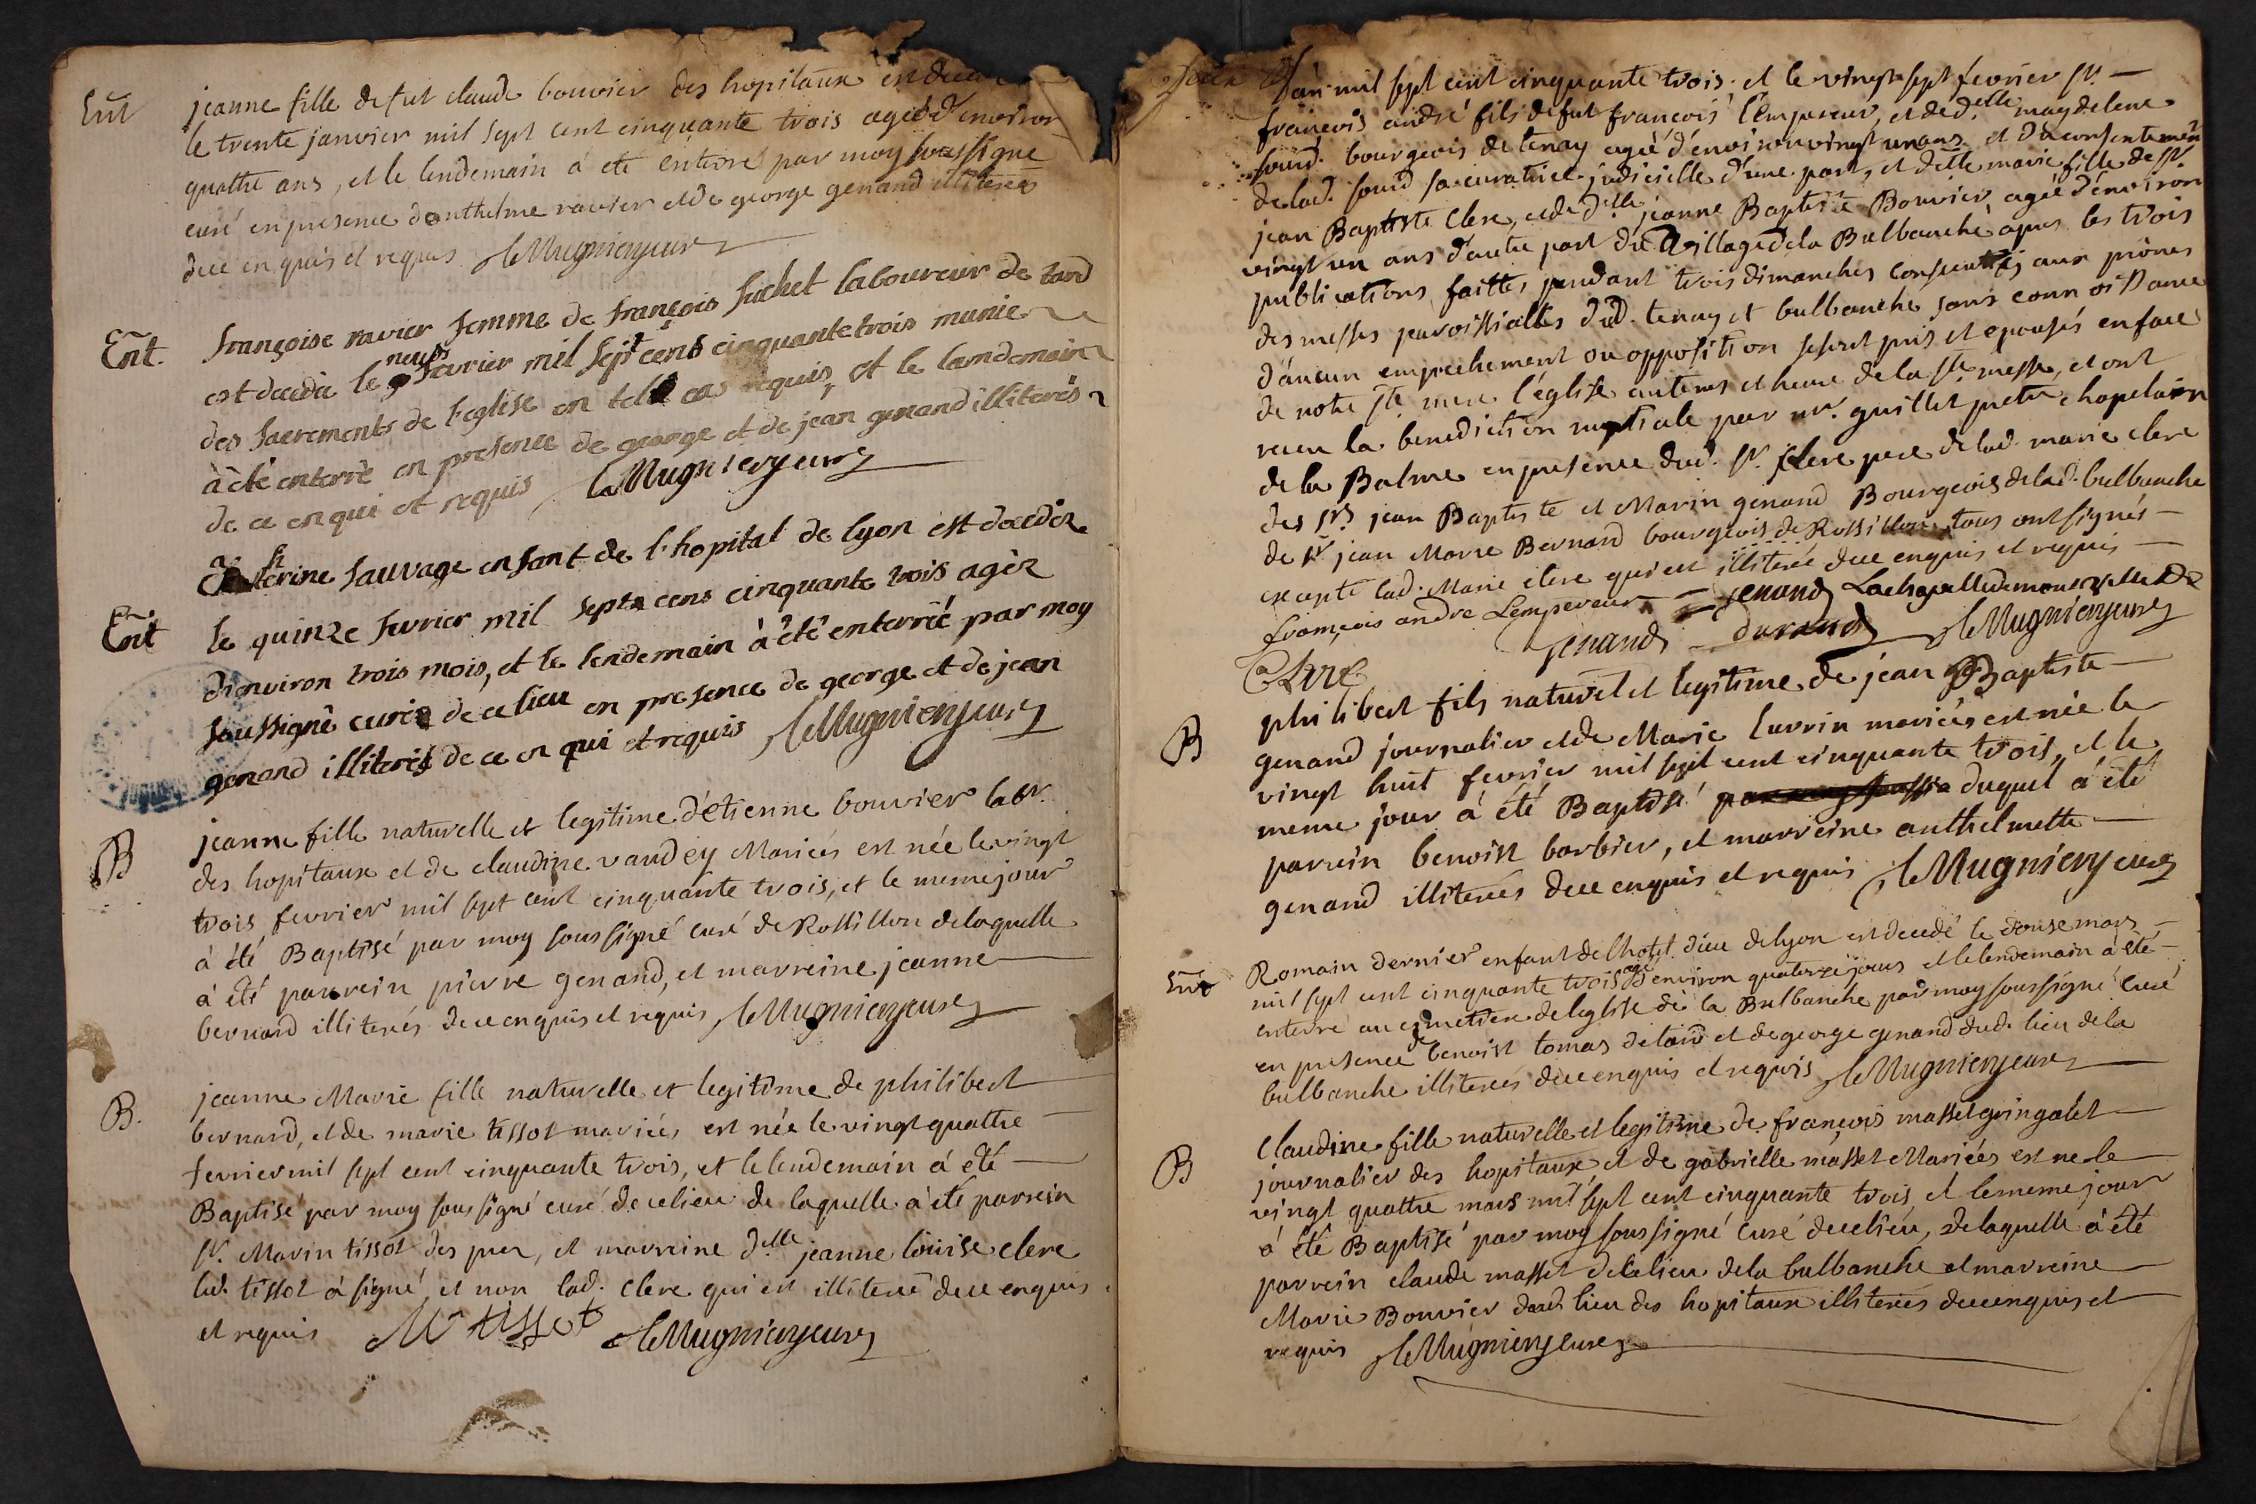 Ent
jeanne fille de fut claude bouvier des hopitaux est
le trente janvier mil sept cent cinquante trois agée d'environ
quattre ans, et le lendemain à eté enterré par moy soussigné
curé en presence d'anthelme ravier et de george genand illiterés
dece enquis et requis leMugnierycuré
Ent.
françoise ravier femme de françois suchet laboureur de
est decedée le neufs fevrier mil sept cens cinquante trois munie
des sacrements de l'eglise en tel cas requis, et le lamdemain
à été enterrè en presence de george et de jean genand illiterés
de ce enqui et requis leMugnierycuré
Ent
Catherine sauvage enfant de l'hopital de lyon est decedée
le quinze fevrier mil sept cens cinquante trois agée
d'environ trois mois, et le lendemain à été enterrée par moy
soussigné curé de ce lieu en presence de george et de jean
genand illiterés de ce en qui et requis leMugnierycuré
B
jeanne fille naturelle et legitime d'étienne bouvier labr.
des hopitaux et de claudine vandey Mariés est née le vingt
trois fevrier mil sept cent cinquante trois, et le meme jour
à été Baptisé par moy soussigné curé de Rossillon de laquelle
à été parrein pierre genand, et marreine jeanne
bernard illiterés dece enquis et requis leMugnierycuré
B.
jeanne Marie fille naturelle et legitime de philibert
bernard, et de marie tissot mariés est née le vingt quattre
fevrier mil sept cent cinquante trois, et le lendemain à été
Baptisé par moy soussigné curé de ce lieu de laquelle à été parrein
sr. Marin tissot des prez, et marreine delle jeanne louise clerc
led. tissot à signé, et non lad. clerc qui est illiterée dece enquis
et requis Mn tissot leMugnierycuré
L'an mil sept cent cinquante trois, et le vingt sept fevrier sr.
francois andré fils de fut francois l'Empereur, et de delle magdelene
sourd bourgeois de tenay agé d'environ vingt un ans et du consentement
de lad. sourd sa curatrice judicielle d'une part, et delle marie fille de sr.
jean Baptiste Clerc, et de delle jeanne Baptiste Bouvier agée d'environ
vingt un ans d'autre part du village de la Bulbanche apres les trois
publications faittes pendant trois dimanches consecutifs aux prônes
des messes paroissialles dud. tenay et bulbanche sans connoissance
d'aucun empechement ou opposition se sont pris et epousés en face
de notre ste mere l'église au tems et heure de la ste messe, et ont
recu la benediction nuptiale par mr. guillet pretre chapelain
de la Balme en presence dud. sr. clerc pere de lad. marie clerc
des srs jean Baptiste et Marin genand Bourgeois de lad. bulbanche
de sr jean Marie Bernard bourgeois de Rossillon tous ont signés
excepté lad. Marie clerc qui est illiterée dece enquis et requis
françois andre Lempereur genand
genand durand leMugnierycuré
Clerc
B
philibert fils naturel et legitime de jean Baptiste
genand journalier et de Marie lavrin mariés est née le
vingt huit fevrier mil sept cent cinquante trois, et le
meme jour à été Baptisé duquel à été
parrein benoist barbier, et marreine anthelmette
genand illiterés dece enquis et requis leMugnierycuré
Ent
Romain dernier enfant de l'hotel dieu de lyon est decedé le douse mars
mil sept cent cinquante trois agé d'environ quatorze jours et le lendemain à été
enterré au cimetiere de l'eglise de la Bulbanche par moy soussigné curé
en presence de benoist tomas de et de george genand dud. lieu de la
bulbanche illiterés dece enquis et requis leMugnierycuré
B
Claudine fille naturelle et legitime de françois masset gringalet
journalier des hopitaux et de gabrielle masset Mariés est ne le
vingt quattre mars mil sept cent cinquante trois et le meme jour
à été Baptisé par moy soussigné curé de ce lieu, de laquelle à été
parrein claude masset de ce lieu de la bulbanche et marreine
Marie Bouvier dud. lieu des hopitaux illiterés dece enquis et
requis leMugnierycuré